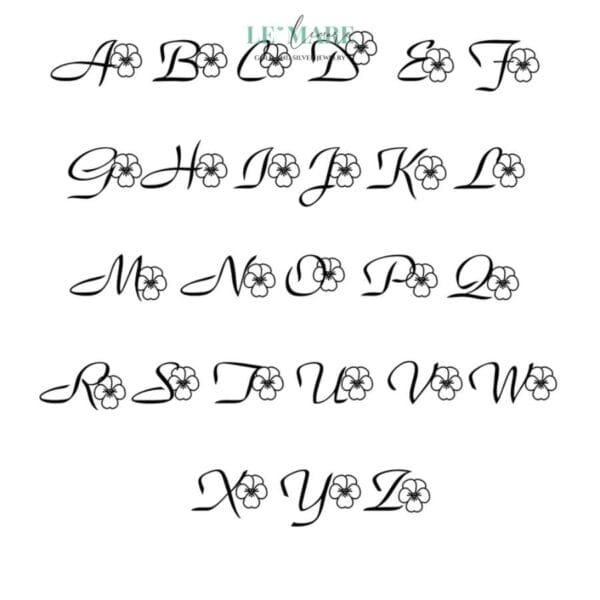 LE' MARE
GOLD AND SILVER JEWELRY
A B C D E F
G H I J K L
M N O P Q
R S T U V W
X Y Z